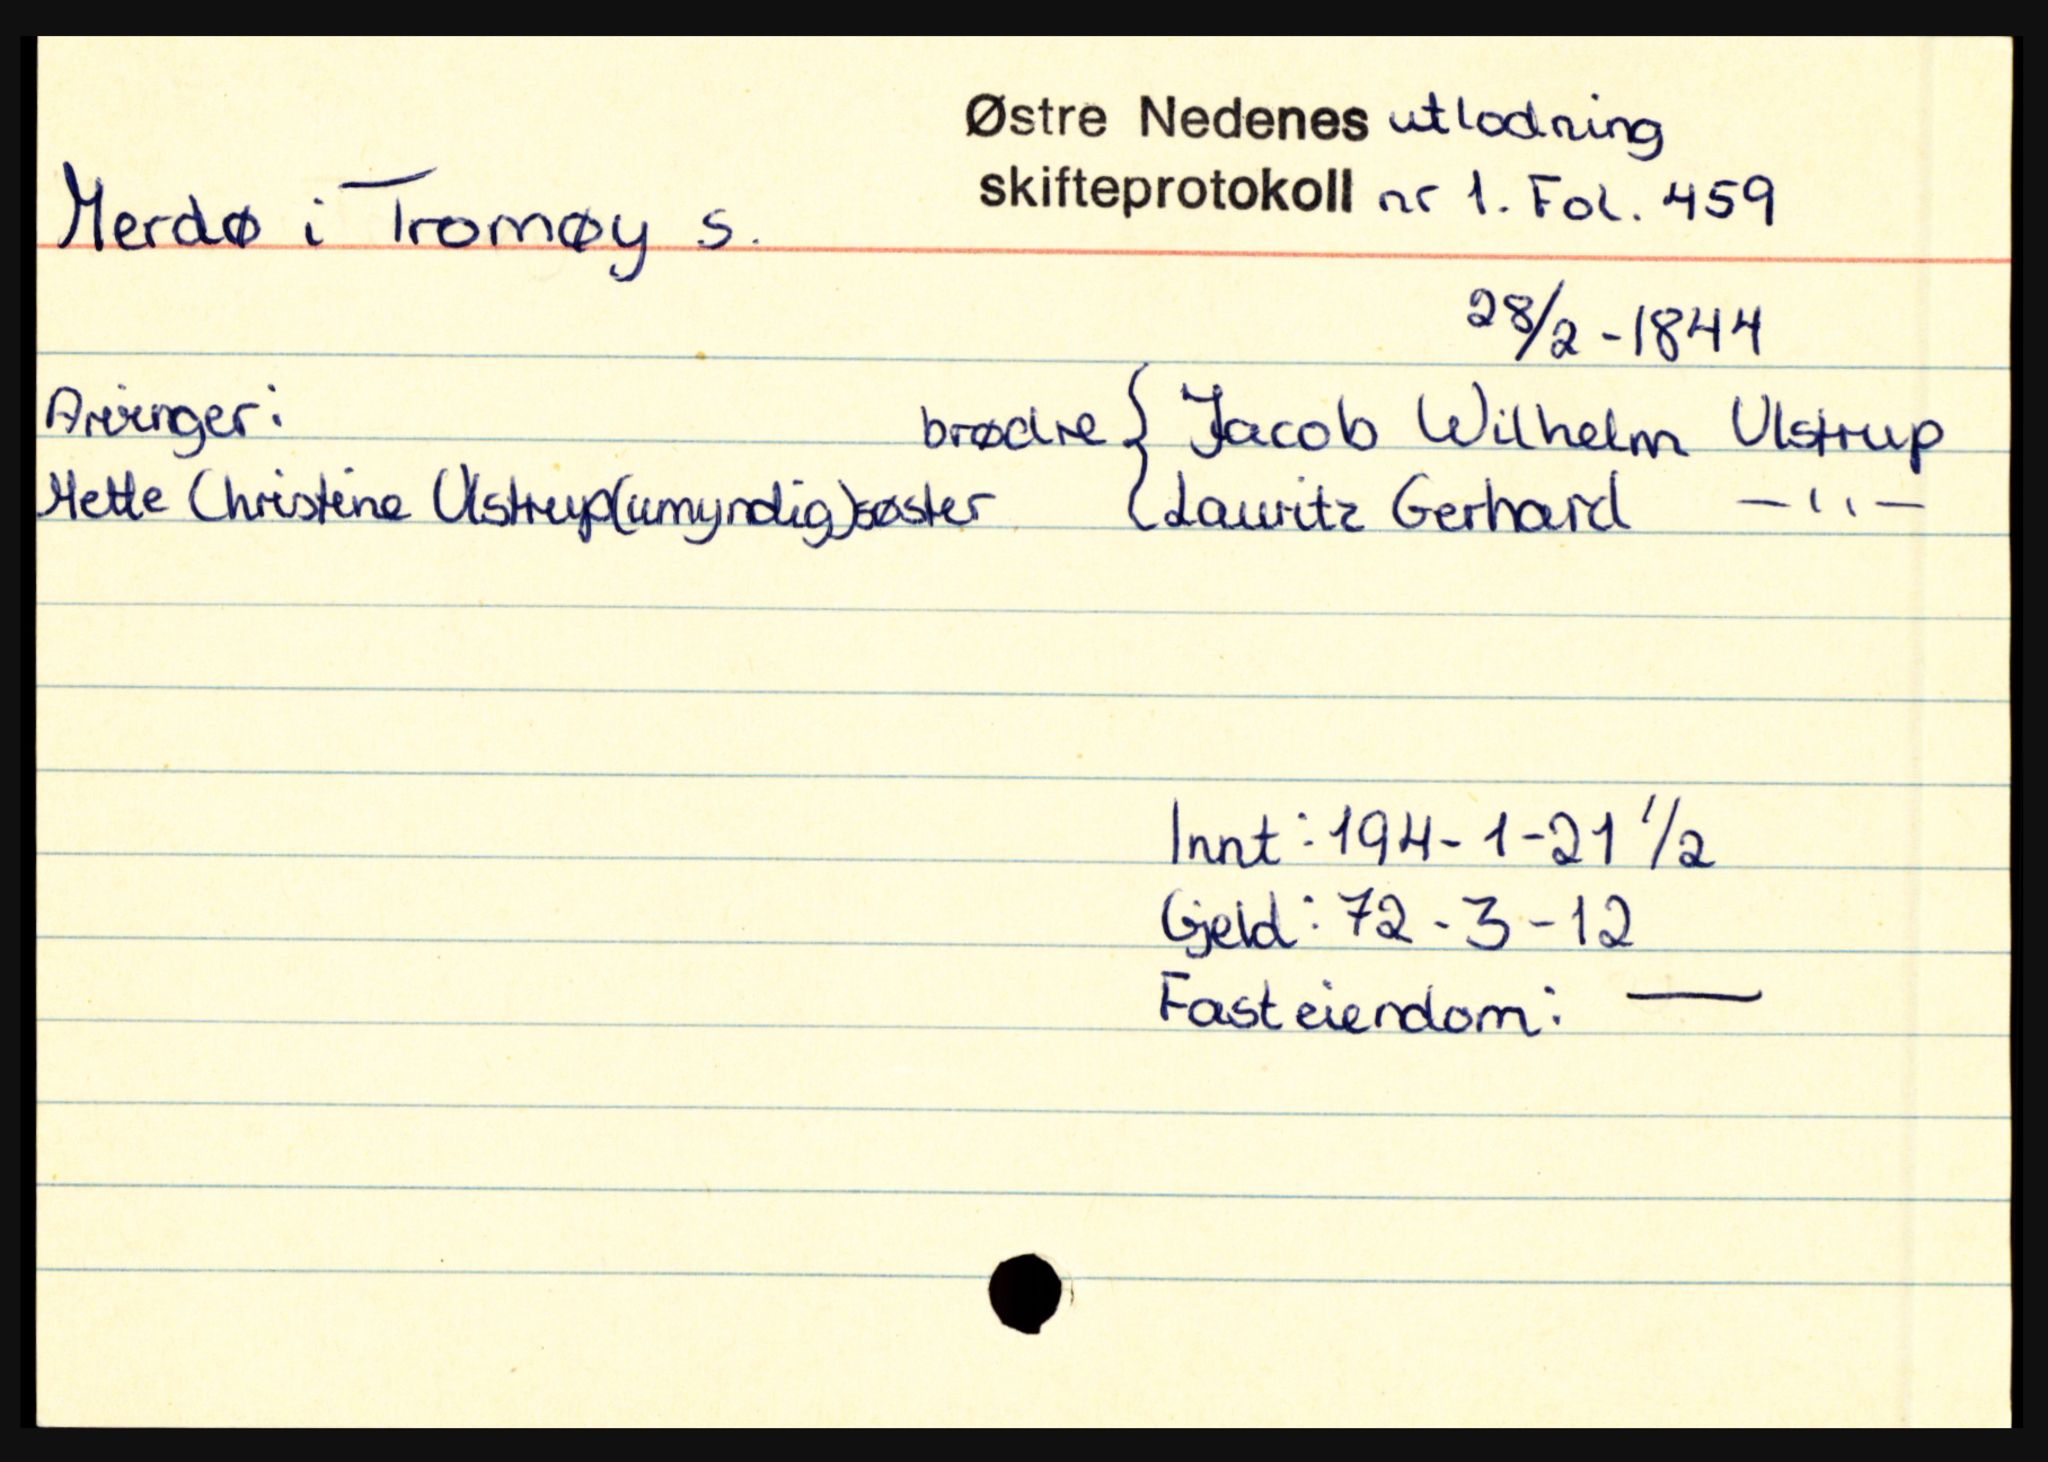 Østre Nedenes utlodning
skifteprotokoll nr 1. Fol. 459
Merdø i Tromøy s.
28/2 - 1844
Arvinger:
brødre { Jacob Wilhelm Ulstrup
Mette Christine Ulstrup (umyndig) søster { Lauritz Gerhard — " —
Innt: 194 - 1 - 21 1/2
Gjeld: 72 - 3 - 12
Fast eiendom: —